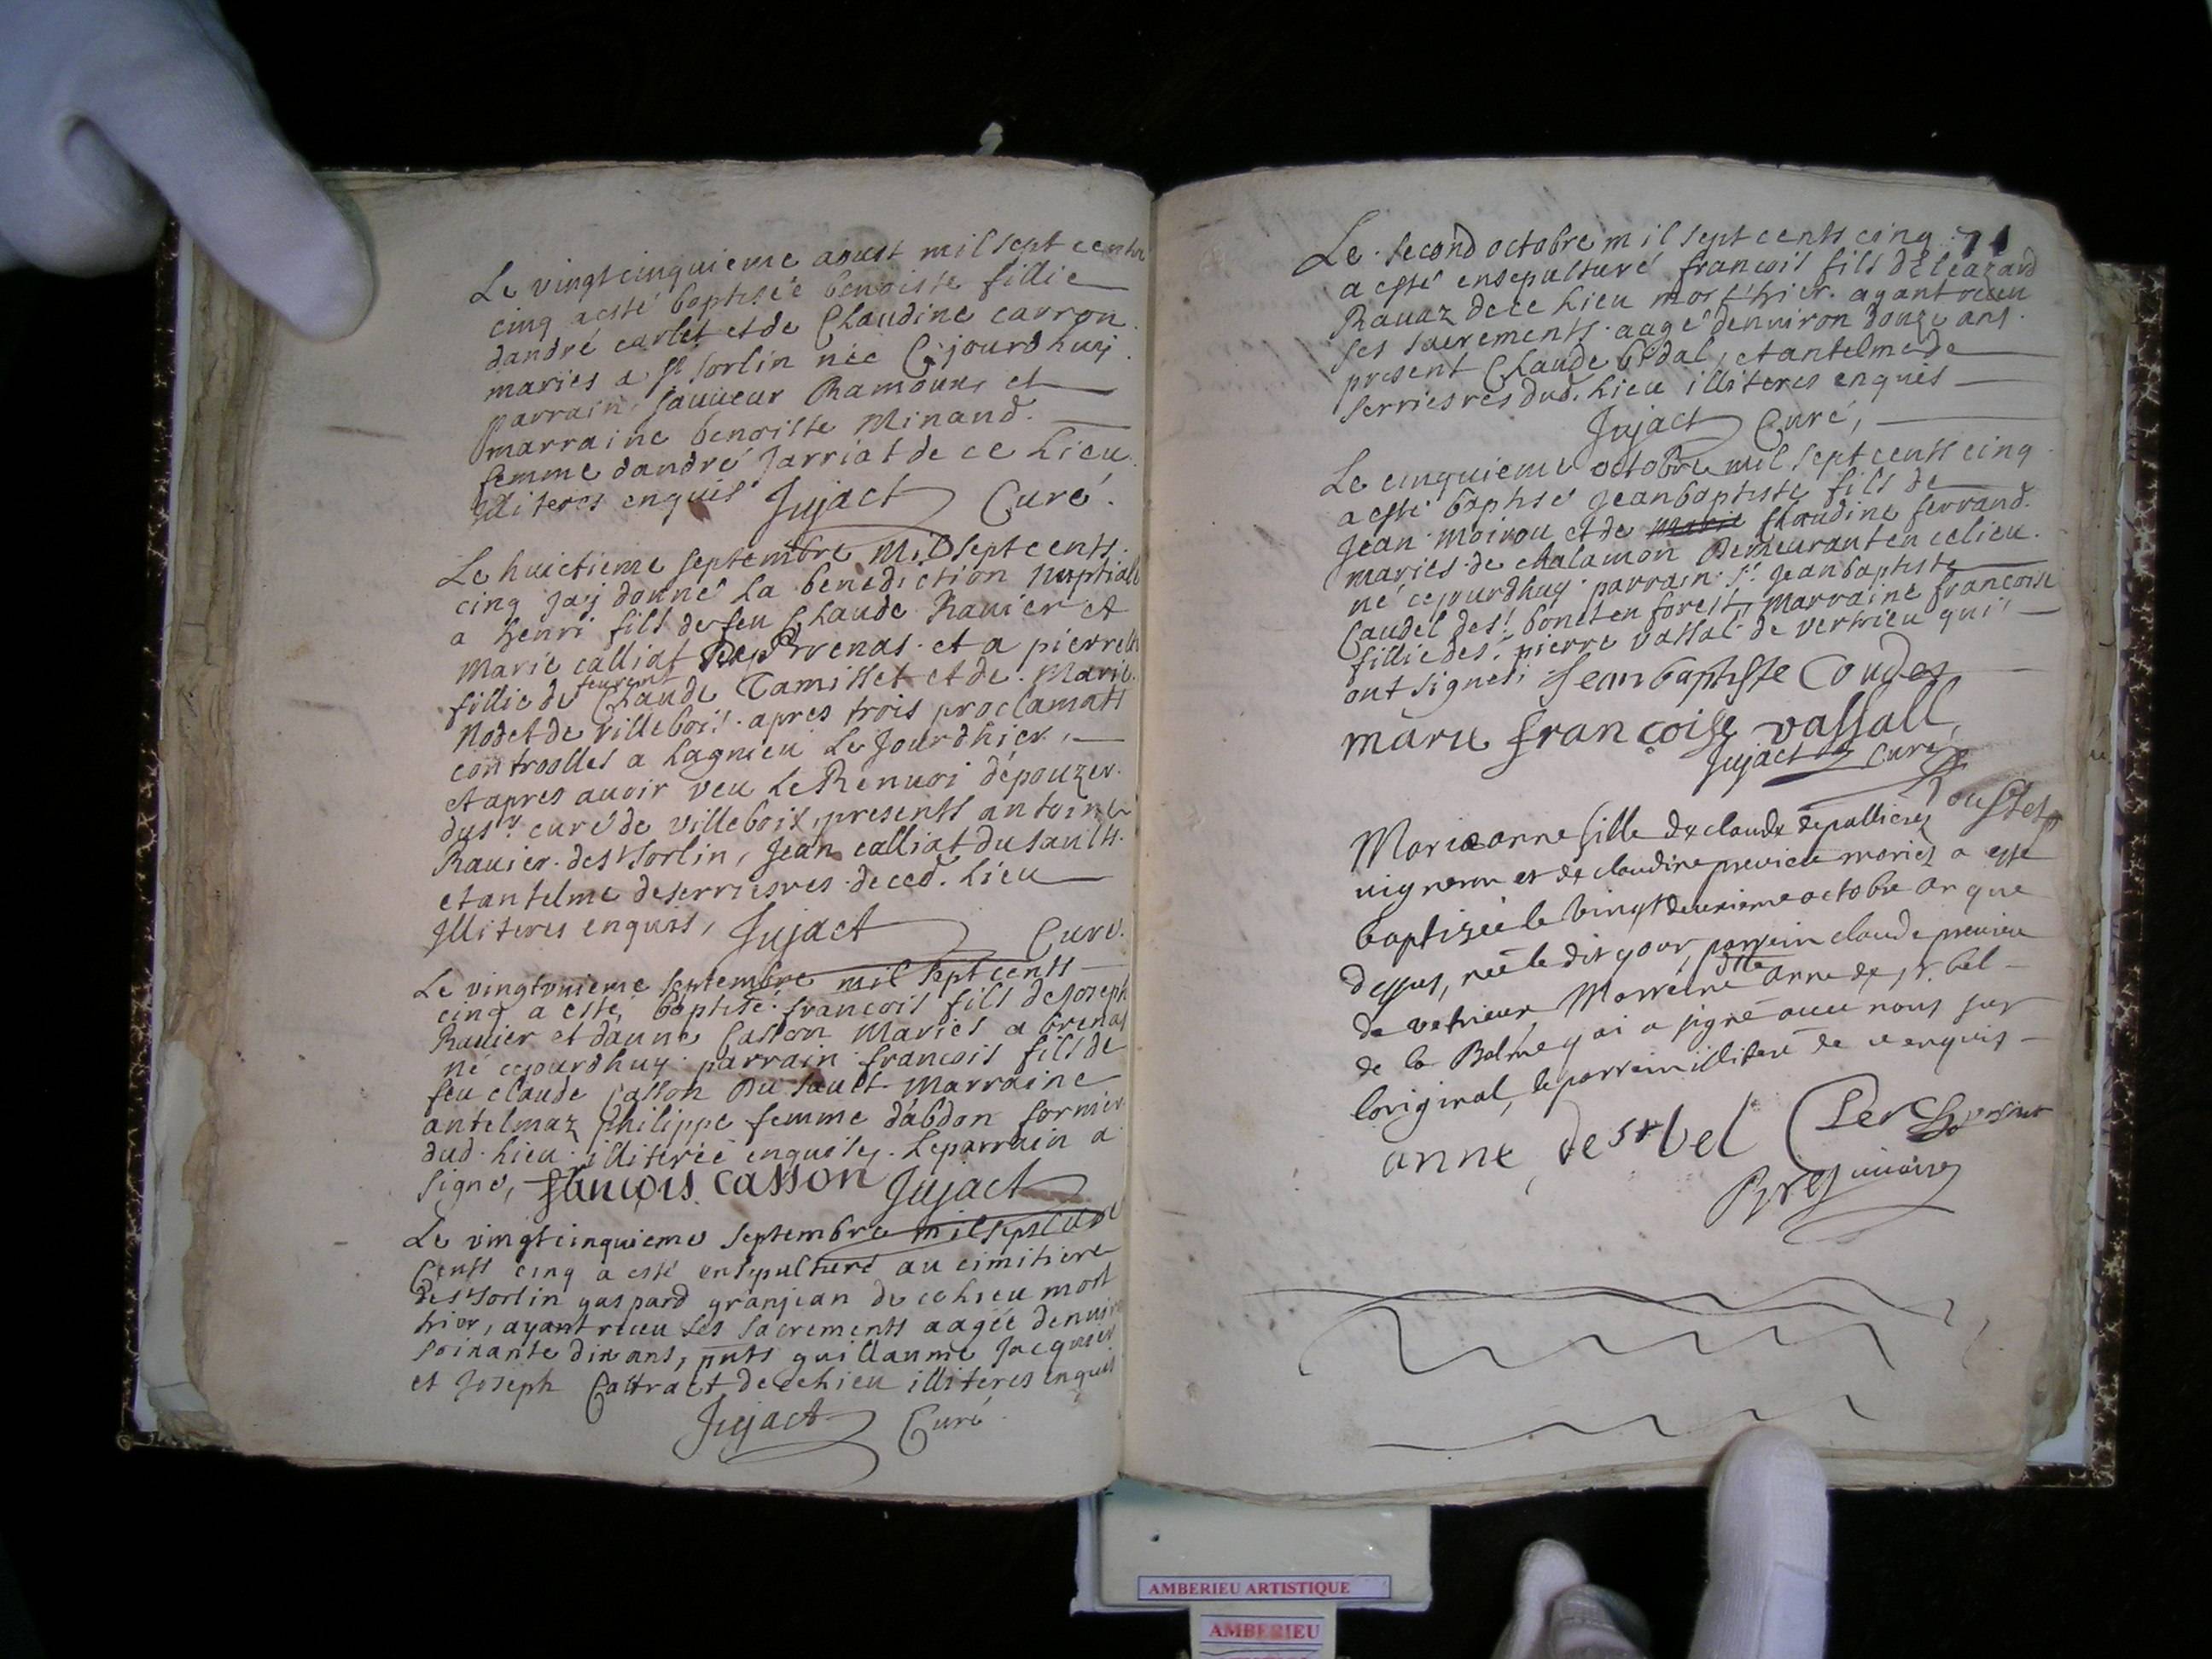 Le vingtcinquieme aoust mil sept cents
cinq a esté baptisée benoiste fillie
dandré carlet et de Claudine carron
maries a St Sorlin née Cejourdhuy
parrain sauveur Ramoux et
marraine benoiste Minand
femme dandré Jarriat de ce Lieu
Illiteres enquis Jujact Curé
Le huictieme septembre Mil sept cents
cinq jay donné La benediction nuptiale
a henri fils de feu Claude Ravier et
Marie calliat et a pierrette
fillie de Claude Tamisset et de Marie
Nodet de villebois apres trois proclamats
controolles a Lagnieu Le jourdhier
et apres avoir veu Le Renvoi dépouzer
du sr curé de villebois, presents antoine
Ravier de st Sorlin, Jean calliat du sault
et antelme de serriesres de ced. Lieu
Illiteres enquis, Jujact Curé
Le vingtunieme septembre mil sept cents
cinq a esté baptisé francois fils de Joseph
Ravier et danne Casson Maries a brenas
né cejourdhuy parrain francois fils de
feu claude casson du sault Marraine
antelmaz philippe femme dabdon fornier
dud. Lieu illiterée enquise. Le parrain a
signé, françois casson Jujact
Curé
Le vingtcinquieme septembre mil sept
Cents cinq a esté ensepulturé au cimitiere
de st Sorlin gaspard granjean de ce Lieu mort
hier, ayant receu ses sacrements aagée denvir
soixante dix ans, pnts guillaume Jacquier
et Joseph Cattract de ce Lieu illiteres enquis
Jujact Curé
71
Le second octobre mil sept cents cinq
a esté ensepulturé francois fils déléazard
Ravaz de ce Lieu mort hier ayant receu
ses sacrements aagé denviron douze ans
present Claude bidal, et antelme de
serriesres dud. Lieu illiteres enquis
Jujact Curé,
Le cinquieme octobre mil sept cents cinq
a esté baptisé Jean baptiste fils de
Jean moirou et de marie Claudine ferrand
maries de chalamon Demeurant en ce lieu
né cejourdhuy parrain sr Jean baptiste
Caudel de st bonet en forest, marraine francoise
fillie de sr pierre vassal de vertrieu qui
ont signes, Jean baptiste Coudes
marie françoise vassall,
Jujact Curé
Marieanne fille de claude depallieres
vigneron et de claudine previeu mariez a esté
baptizée le vingt deuxieme octobre an que
dessus, née le dit jour, parrein claude previeu
de vetrieux Marreine dlle anne de st bel
de la Balme qui a signé avec nous sur
loriginal, le parrein illiteré de ce enquis
anne de st bel